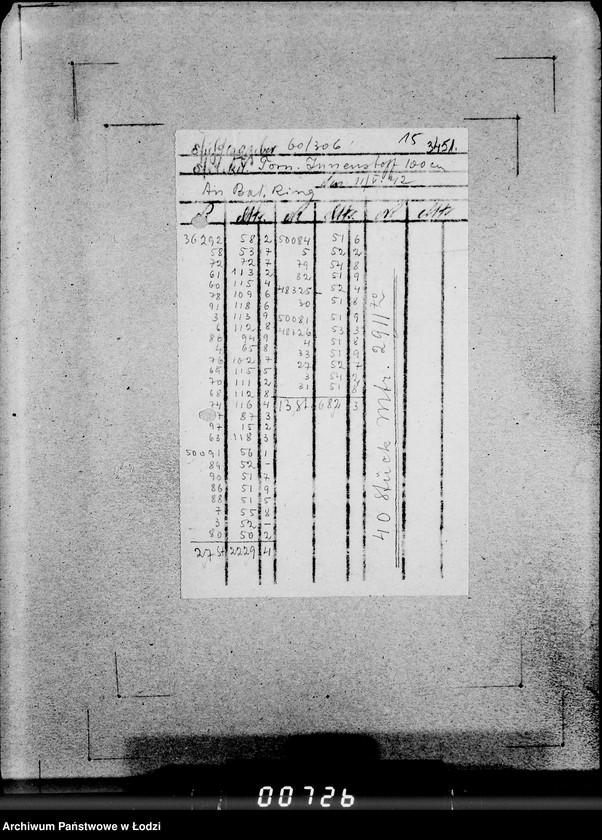 60/306 15 3451.
Torn. Innenstoff 100 cm
An Bal. Ring den 11/V. 42
№ Mtr. № Mtr. № Mtr.
36292 58 2 50084 51 6
58 53 7 5 52 2
72 72 7 79 54 8
61 113 2 82 51 9
60 115 4 48325 52 4
78 109 6 30 51 8
91 118 6
3 113 9 50081 51 9
6 112 8 48326 53 3
80 94 9 4 51 8
4 65 8 33 51 9
76 102 7 27 52 7
65 115 5 3 54 2
70 111 2 31 51 8
68 112 8
74 116 4 13 St 682 3
7 87 3
97 15 2
63 118 3
50091 56 1
89 52 -
90 51 7
86 51 9
88 51 5
7 55 8
3 52 -
80 50 2
27 St 2229 4
40 Stück Mtr. 2911 70
00726
Archiwum Państwowe w Łodzi